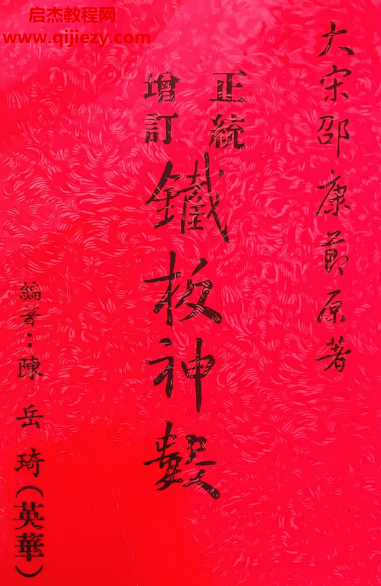 启杰教程网
www.qijiezy.com
大宋邵康節原著
正統
增訂
鐵板神數
編者：陳岳琦（英華）